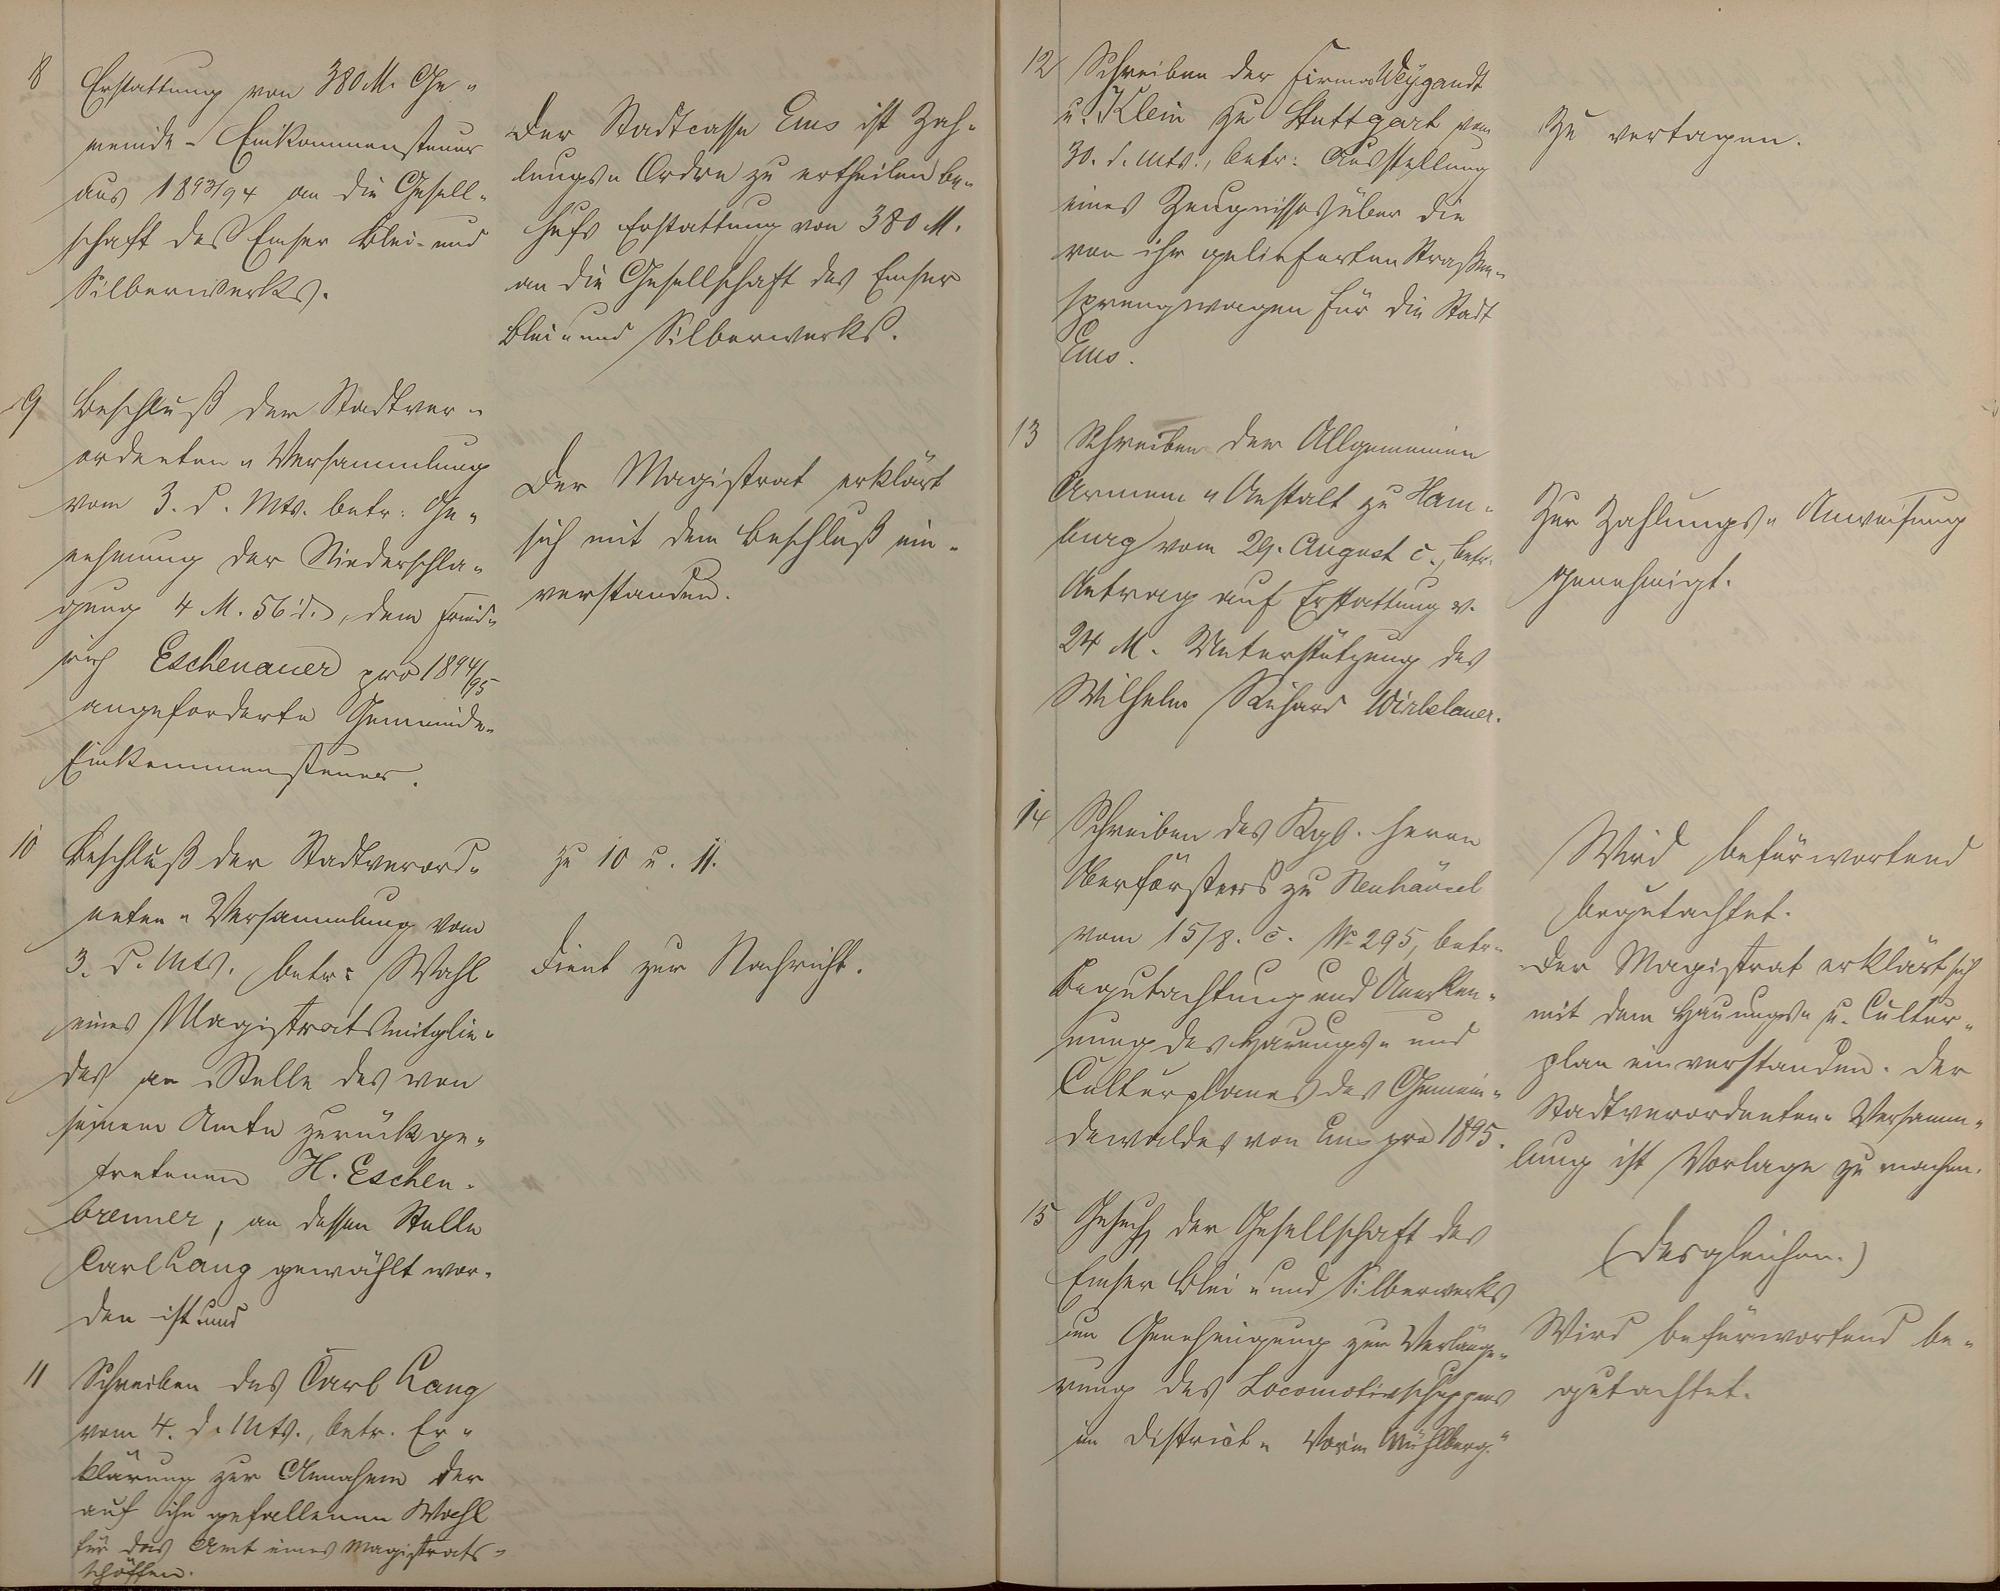 8 Erstattung von 380 M. Ge-
meinde-Einkommensteuer
aus 1893/94 an die Gesell-
schaft des Emser Blei- und
Silberwerks.
Der Stadtcasse Ems ist Zah-
lungs-Ordre zu ertheilen be-
hufs Erstattung von 380 M.
an die Gesellschaft des Emser
Blei- und Silberwerks.
9 Beschluß der Stadtver-
ordneten-Versammlung
vom 3. d. Mts. betr: Ge-
nehmung der Niederschla-
gung 4 M. 56 d., dem Fried-
rich Eschenauer pro 1894/95
angeforderte Gemeinde-
Einkommensteuer.
Der Magistrat erklärt
sich mit dem Beschluß ein-
verstanden.
10 Beschluß der Stadtverord-
neten-Versammlung vom
3. d. Mts. betr: Wahl
eines Magistratsmitglie-
des an Stelle des von
seinem Amte zurückge-
tretenen H. Eschen-
brenner, an dessen Stelle
Carl Lang gewählt wor-
den ist und
zu 10 u. 11.
Dient zur Nachricht.
11 Schreiben des Carl Lang
vom 4. d. Mts., betr. Er-
klärung zur Annahme der
auf ihn gefallenen Wahl
für das Amt eines Magistrats-
schöffen.
12 Schreiben der Firma Weygandt
u. Klein zu Stuttgart vom
30. d. Mts., betr: Ausstellung
eines Zeugnisses über die
von ihr gelieferten Straßen-
sprengwagen für die Stadt
Ems.
Zu vertagen.
13 Schreiben der Allgemeinen
Armen-Anstalt zu Ham-
burg vom 29. August c., betr.
Antrag auf Erstattung v.
24 M. Unterstützung des
Wilhelm Richard Wirbelauer.
Zur Zahlungs-Anweisung
genehmigt.
14 Schreiben des Kgl. Herrn
Oberförsters zu Neuhäusel
vom 15/8. c. No 295, betr.
Begutachtung und Anerken-
nung des Hauungs- und
Culturplanes des Gemein-
dewaldes von Ems pro 1895.
Wird befürwortend
begutachtet.
Der Magistrat erklärt sich
mit dem Hauungs- u. Cultur-
plan einverstanden. Der
Stadtverordneten-Versamm-
lung ist Vorlage zu machen.
15 Gesuch der Gesellschaft des
Emser Blei- und Silberwerks
um Genehmigung zur Verlänge-
rung des Locomotivschuppens
im District „Vorm Mühlberg."
(Desgleichen.)
Wird befürwortend be-
gutachtet.